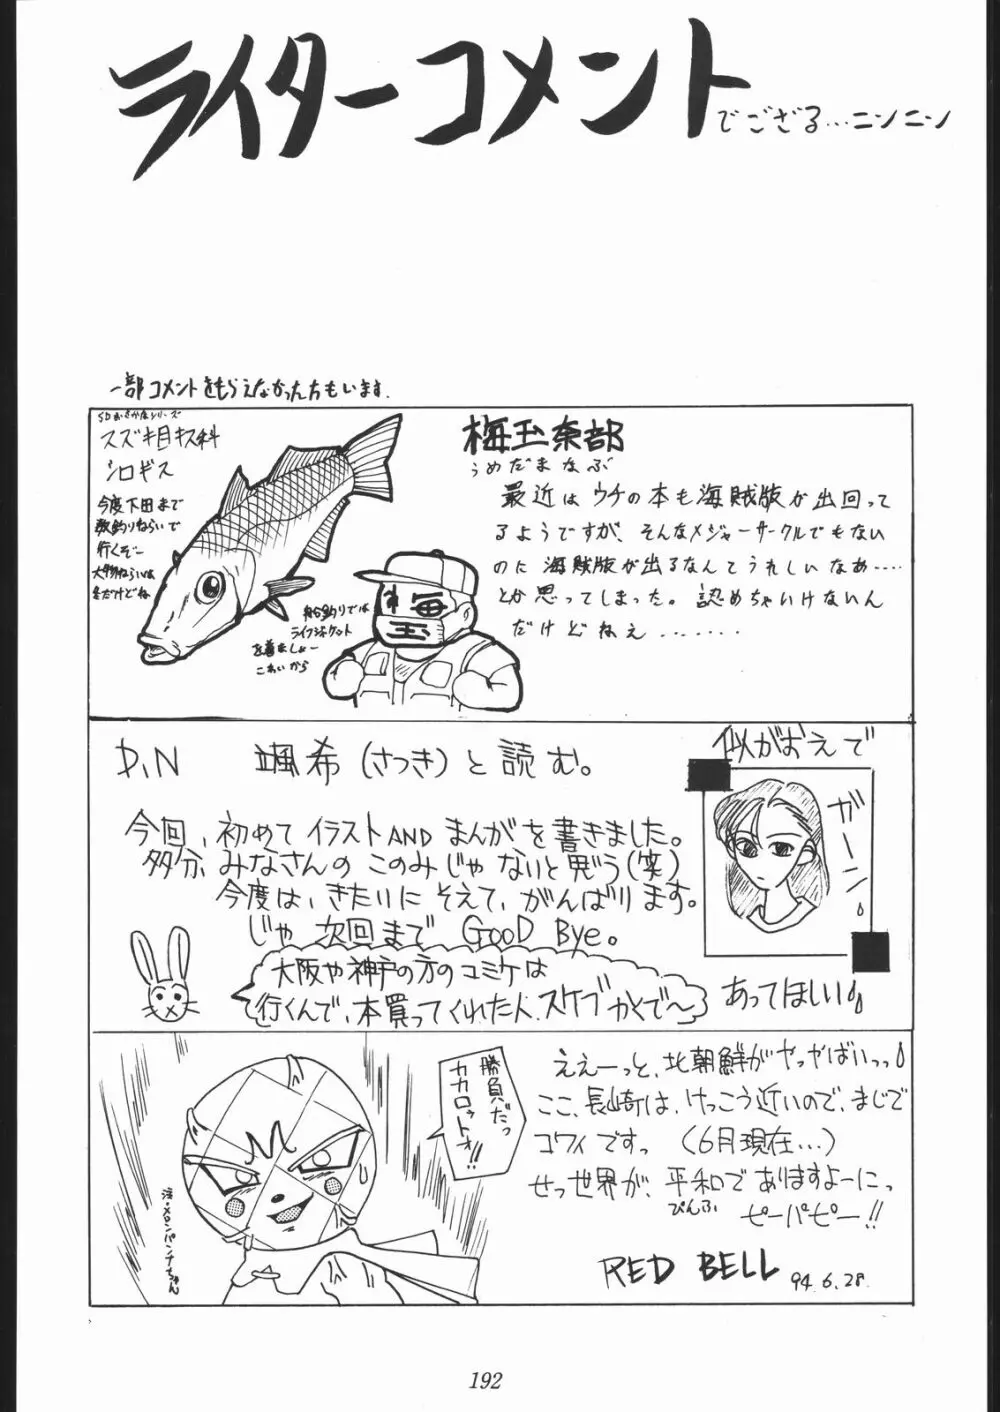 ライターコメント
でござる…ニンニン
一部コメントをもらえなかった方もいます.
SDおさかなシリーズ
スズキ目キス科
シロギス
今度下田まで
数釣りねらいで
行くぞー
大物ねらいは
まだけどね
船釣りでは
ライフジャケット
を着ましょー
こわいから
梅玉
梅玉奈部
うめだまなぶ
最近はウチの本も海賊版が出回って
るようですが、そんなメジャーサークルでもない
のに海賊版が出るなんてうれしいなあ……
とか思ってしまった。認めちゃいけないん
だけどねえ………
P.N 颯希(さつき)と読む。
今回、初めてイラストANDまんがを書きました。
多分、みなさんのこのみじゃないと思う(笑)
今度は、きたいにそえて、がんばります。
じゃ次回まで GooD Bye。
大阪や神戸の方のコミケは
行くんで、本買ってくれた人、スケブかくで〜
似がおえで
ガーン
あってほしい
勝負だっ
カカロットォ!!
注・メロンパンナちゃん
ええーっと、北朝鮮がやっやばいっっ
ここ、長崎は、けっこう近いので、まじで
コワイですっ (6月現在…)
せっ世界が、平和でありますよーにっ
ぴんふ
ピーパピー!!
RED BELL
94.6.28.
192